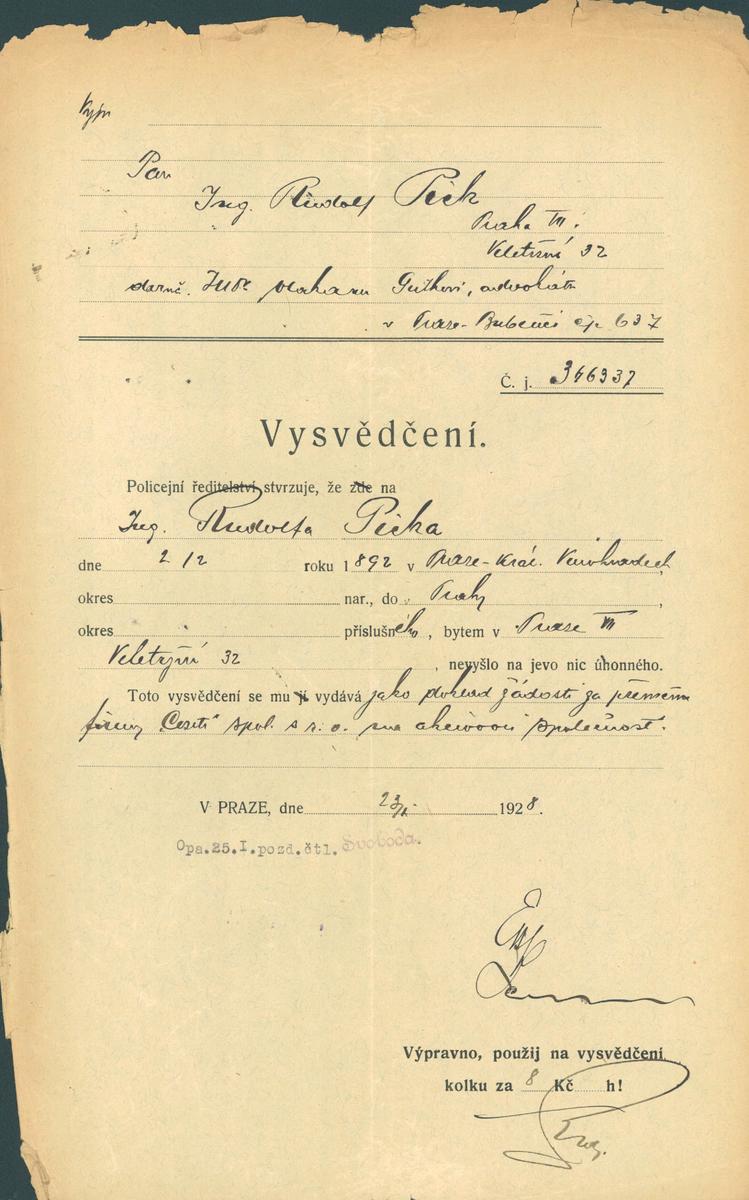 Pan
Ing. Rudolf Pick
Praha VII.
Veletržní 32
Guthovi, advokátu
v Praze-Bubenči čp 637
Č. j. 346337
Vysvědčení.
Policejní ředitelství stvrzuje, že zde na
Ing. Rudolfa Picka
dne 2/2 roku 1892 v Praze-Král. Vinohradech,
okres nar., do Prahy,
okres příslušného, bytem v Praze VII
Veletržní 32, nevyšlo na jevo nic úhonného.
Toto vysvědčení se mu ji vydává jako doklad žádosti za přeměnu
firmy spol. s r. o. na akciovou společnost.
V PRAZE, dne 23/I. 1928.
Opa.25.I.pozd.čtl. Svoboda.
Výpravno, použij na vysvědčení
kolku za 8 Kč h!